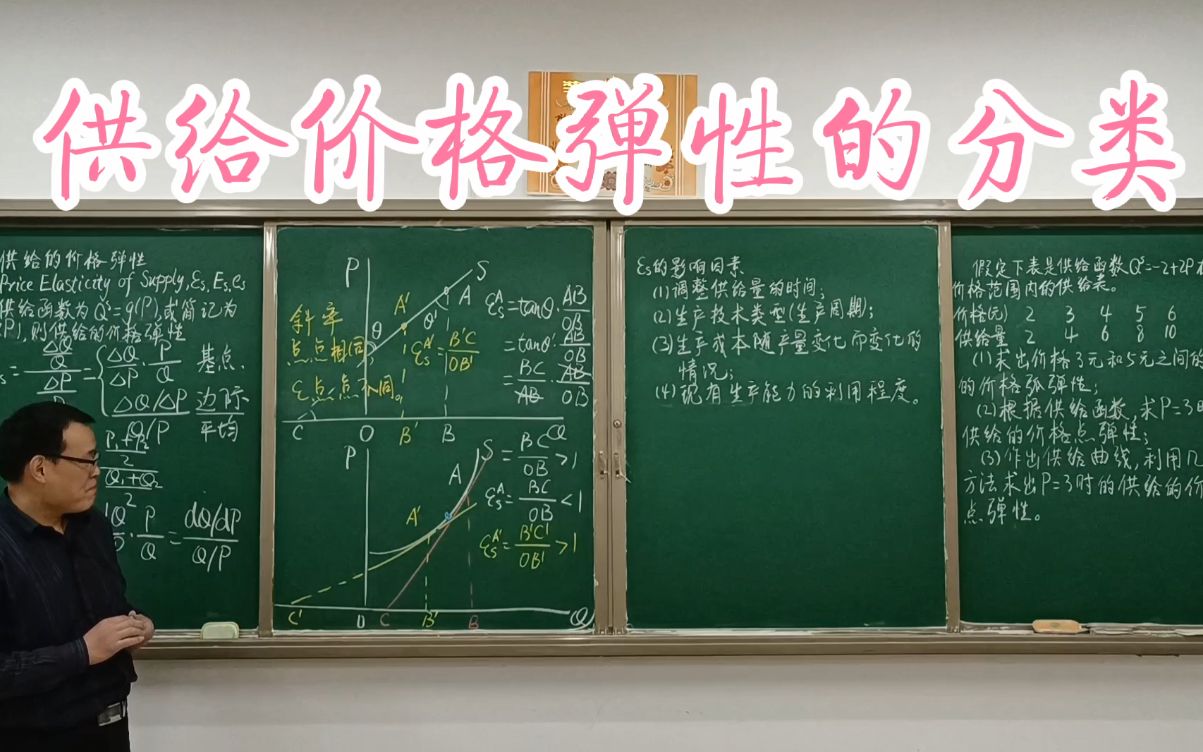 供给价格弹性的分类
供给的价格弹性
Price Elasticity of Supply, Es, Es, es
供给函数为 Qˢ=g(P), 或简记为
则供给的价格弹性
基点
边际
平均
dQ/dP
Q/P
P
S
斜率
点点相同
ε点点不同。
A'
A
Q'
θ
C O B' B Q
εₛᴬ=tanθ·AB/OB
=tanθ'·AB/OB
=BC/AB·AB/OB
=BC/OB>1
εₛᴬ'=B'C/OB'
P
S
A
A'
εₛᴬ=BC/OB<1
εₛᴬ'=B'C'/OB'>1
C' O C B' B Q
εs的影响因素
(1)调整供给量的时间;
(2)生产技术类型(生产周期);
(3)生产成本随产量变化而变化的
情况;
(4)现有生产能力的利用程度。
假定下表是供给函数Qˢ=-2+2P
价格范围内的供给表。
价格(元) 2 3 4 5 6
供给量 2 4 6 8 10
(1)求出价格3元和5元之间的
的价格弧弹性;
(2)根据供给函数,求P=3
供给的价格点弹性;
(3)作出供给曲线,利用几
方法求出P=3时的供给的价
点弹性。